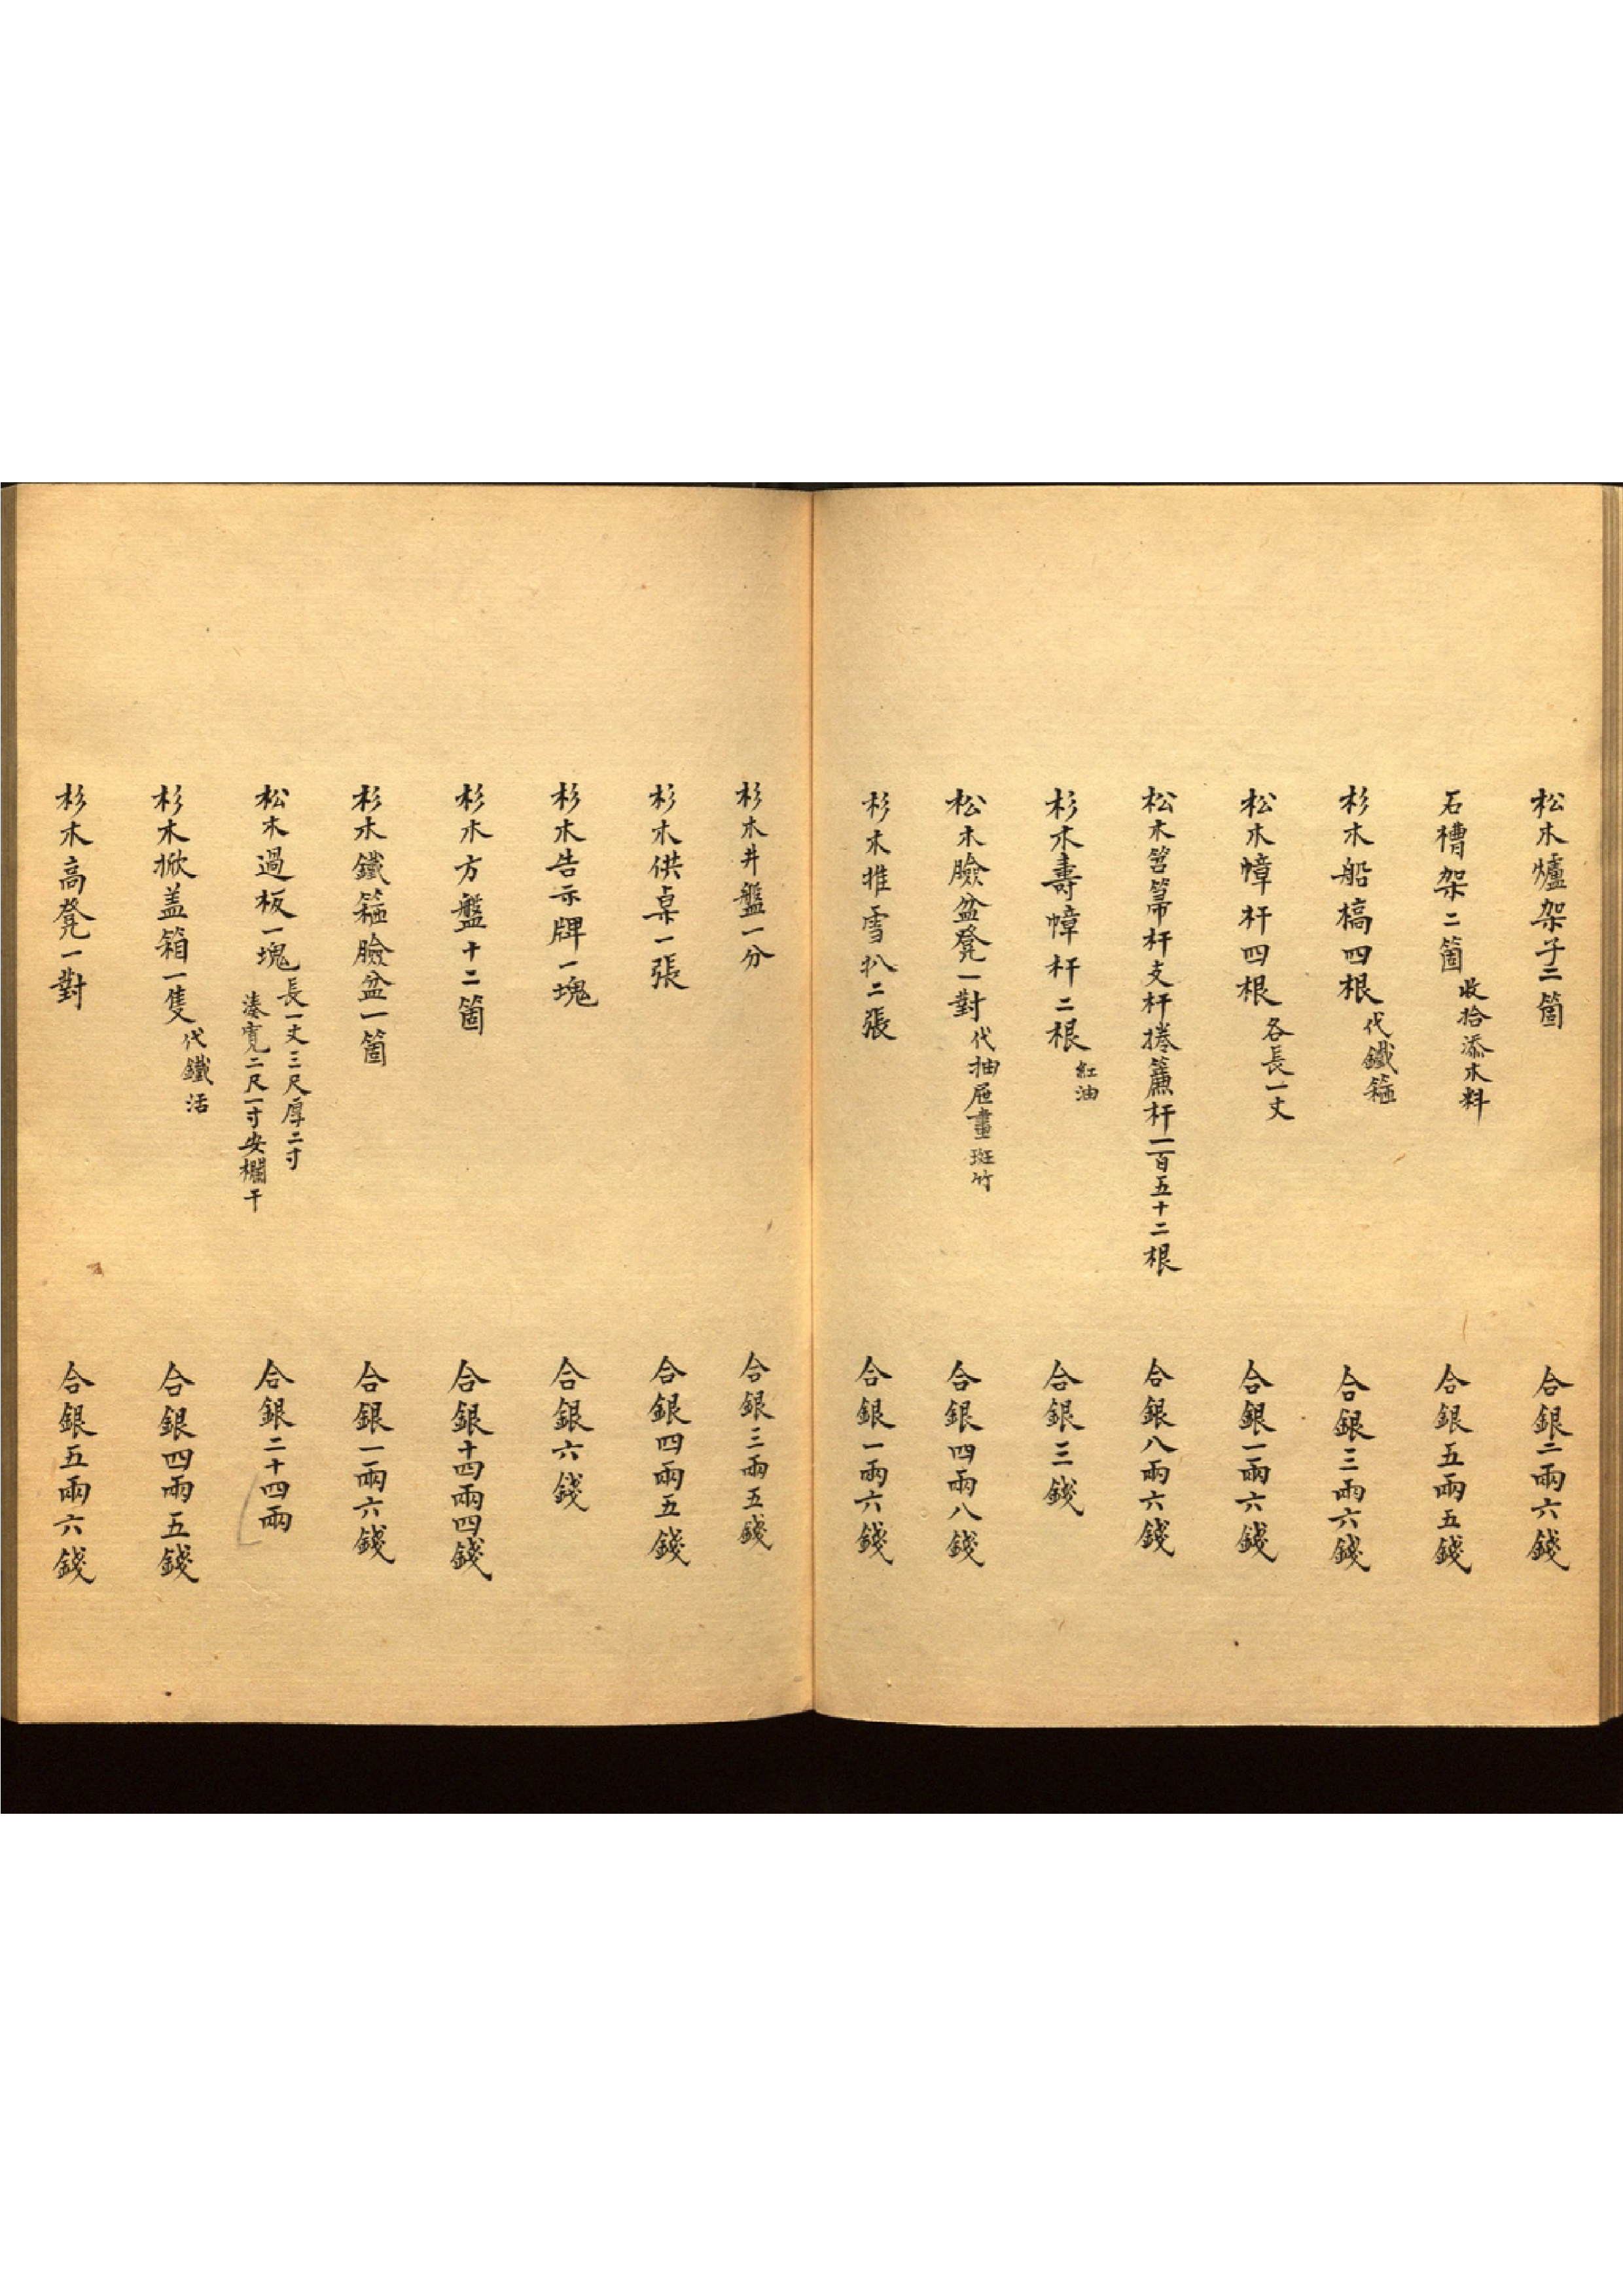 松木爐架子二箇 合銀二兩六錢
石槽架二箇 收拾添木料 合銀五兩五錢
杉木船槁四根 代鐵箍 合銀三兩六錢
松木幛杆四根 各長一丈 合銀一兩六錢
松木笤箒杆支杆捲簾杆一百五十二根 合銀八兩六錢
杉木壽幛杆二根 紅油 合銀三錢
松木臉盆凳一對 代抽屜畫斑竹 合銀四兩八錢
杉木推雪扒二張 合銀一兩六錢
杉木井盤一分 合銀三兩五錢
杉木供桌一張 合銀四兩五錢
杉木告示牌一塊 合銀六錢
杉木方盤十二箇 合銀十四兩四錢
杉木鐵箍臉盆一箇 合銀一兩六錢
松木過板一塊 長一丈三尺厚二寸
湊寬二尺一寸安欄干 合銀二十四兩
杉木掀盖箱一隻 代鐵活 合銀四兩五錢
杉木高凳一對 合銀五兩六錢